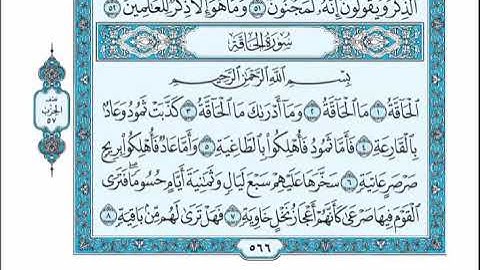 الذِّكْرَ وَيَقُولُونَ إِنَّهُۥ لَمَجْنُونٌ ٥١ وَمَا هُوَ إِلَّا ذِكْرٌ لِّلْعَٰلَمِينَ ٥٢
سُورَةُ الحَاقَّةِ
بِسْمِ ٱللَّهِ ٱلرَّحْمَٰنِ ٱلرَّحِيمِ
ٱلْحَآقَّةُ ١ مَا ٱلْحَآقَّةُ ٢ وَمَآ أَدْرَىٰكَ مَا ٱلْحَآقَّةُ ٣ كَذَّبَتْ ثَمُودُ وَعَادٌۢ
بِٱلْقَارِعَةِ ٤ فَأَمَّا ثَمُودُ فَأُهْلِكُوا۟ بِٱلطَّاغِيَةِ ٥ وَأَمَّا عَادٌ فَأُهْلِكُوا۟ بِرِيحٍ
صَرْصَرٍ عَاتِيَةٍ ٦ سَخَّرَهَا عَلَيْهِمْ سَبْعَ لَيَالٍ وَثَمَٰنِيَةَ أَيَّامٍ حُسُومًا فَتَرَى
ٱلْقَوْمَ فِيهَا صَرْعَىٰ كَأَنَّهُمْ أَعْجَازُ نَخْلٍ خَاوِيَةٍ ٧ فَهَلْ تَرَىٰ لَهُم مِّنۢ بَاقِيَةٍ ٨
٥٦٦
نصف
الحزب
٥٧